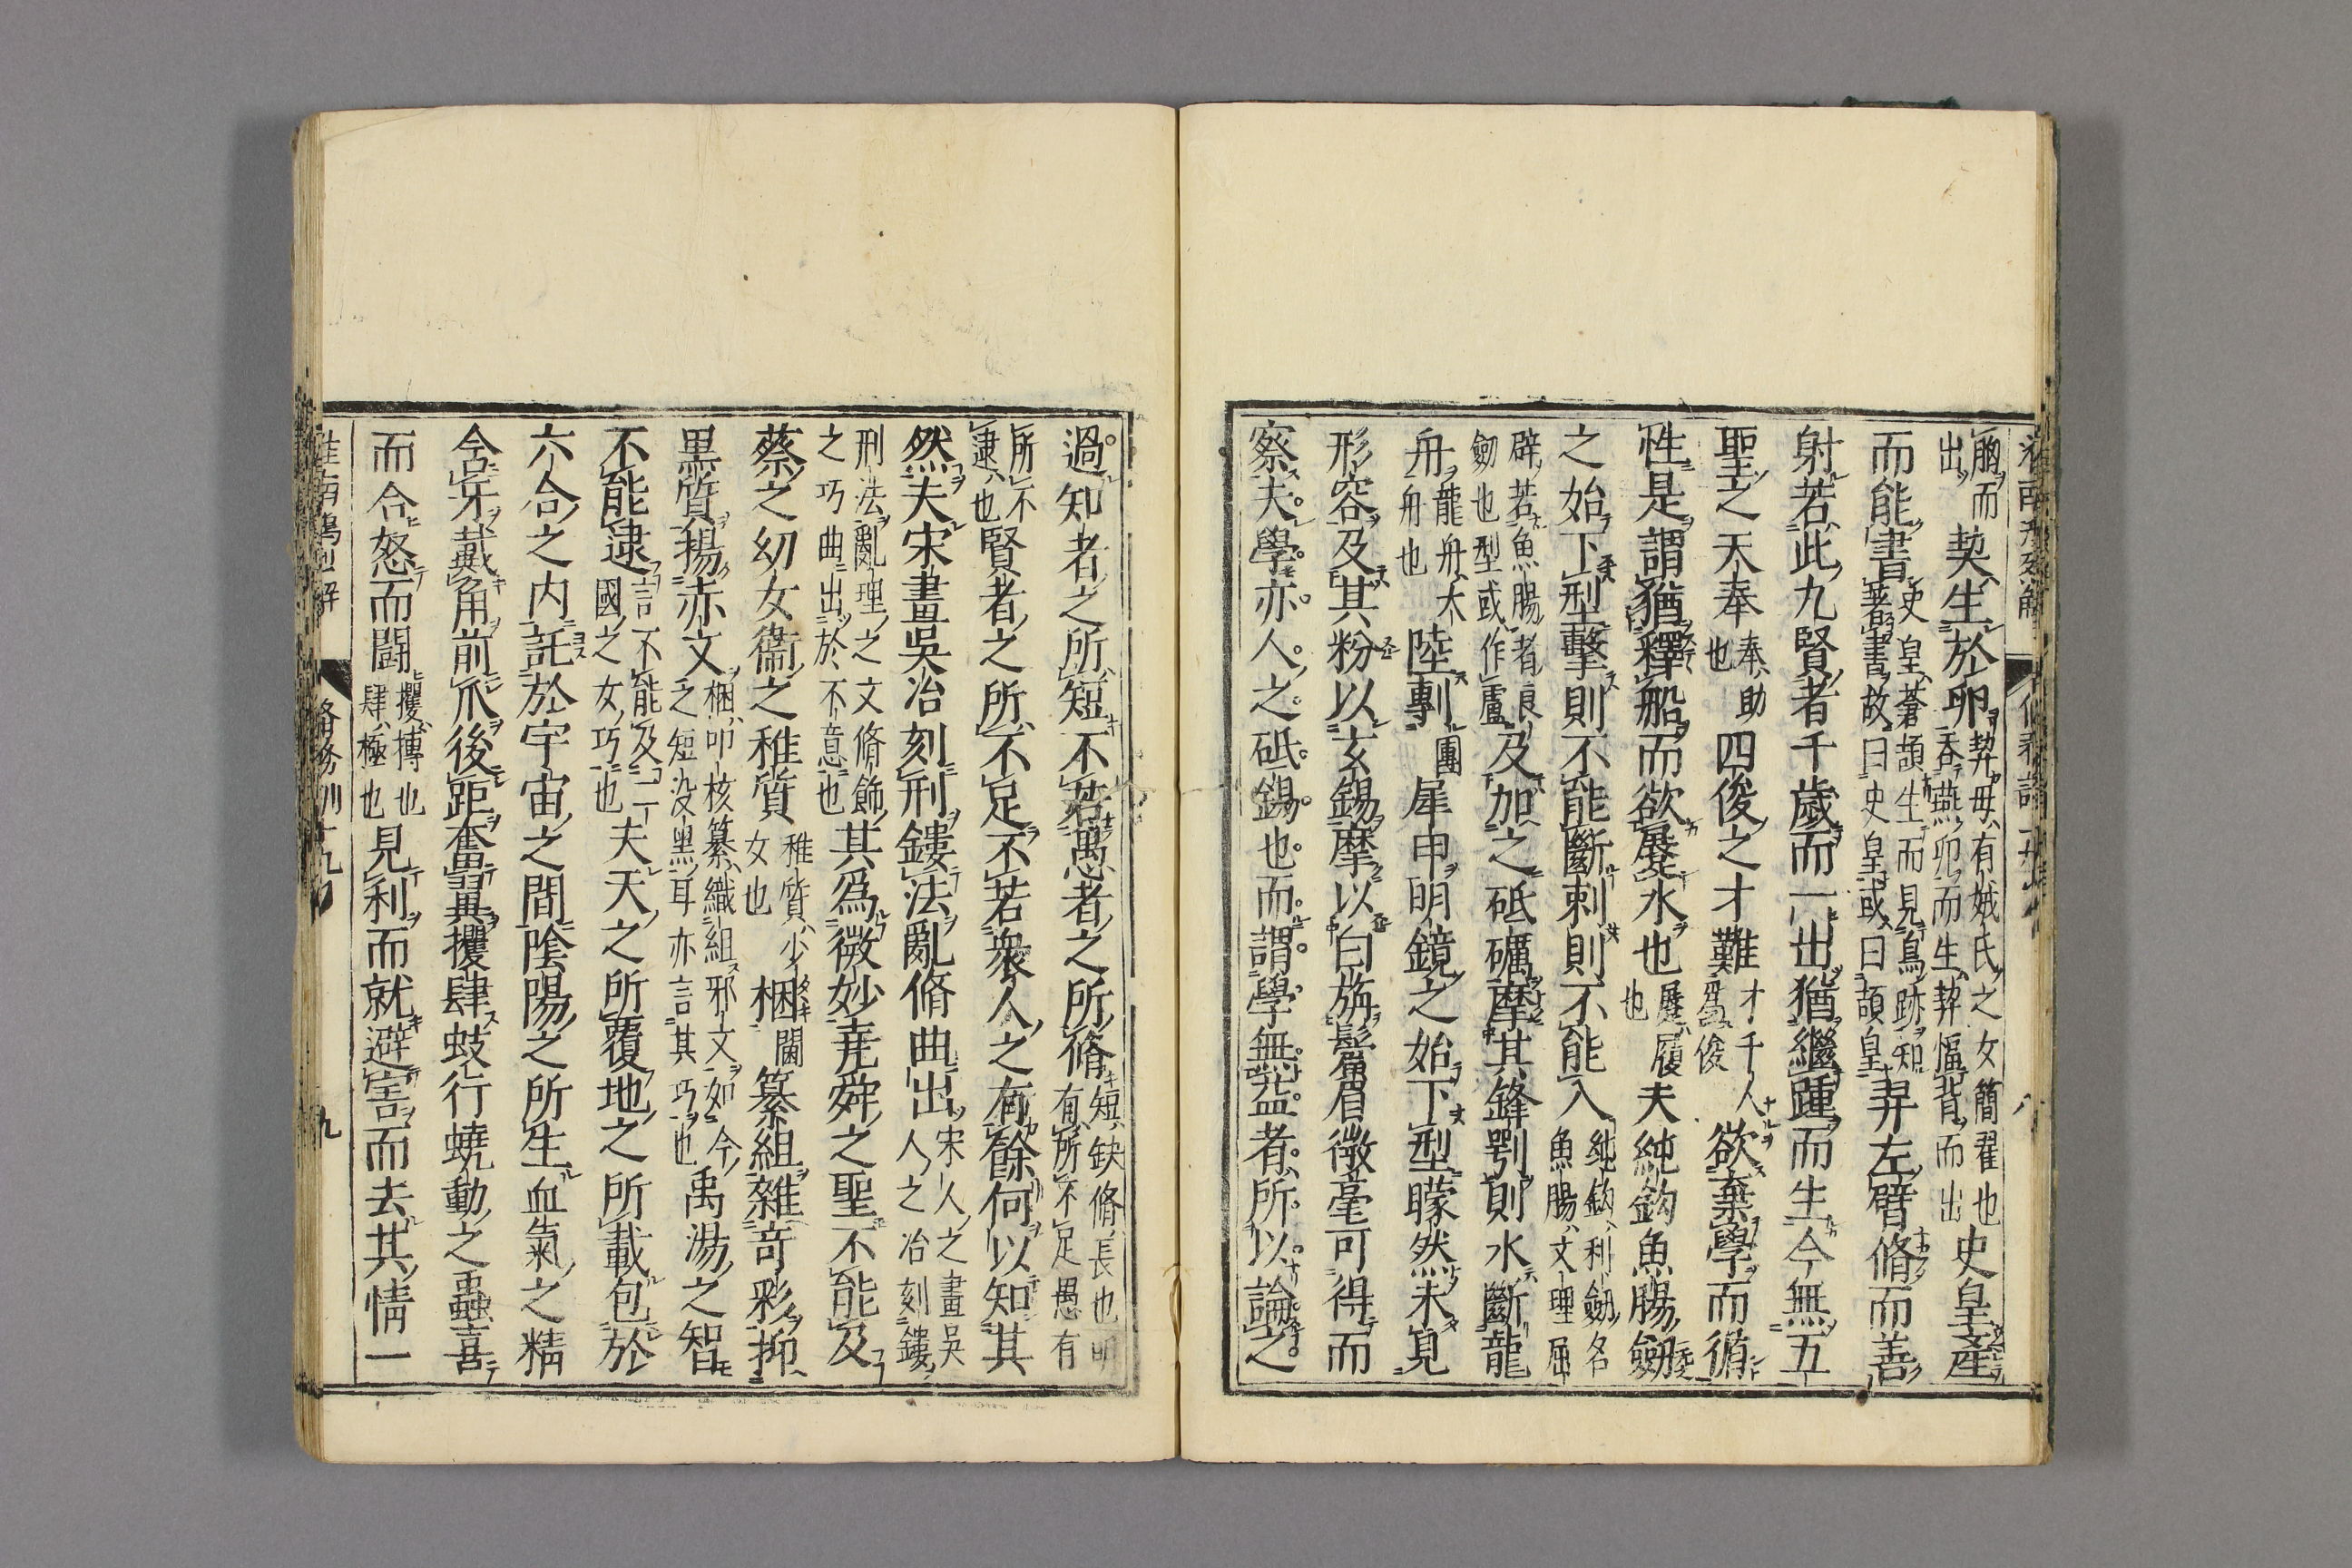 胸而出契生於卵契母有娀氏之女簡翟也吞燕卵而生契愊背而出史皇產
而能書史皇蒼頡生而見鳥跡知著書故曰史皇或曰頡皇羿左臂脩而善
射若此九賢者千歲而一出猶繼踵而生今無五
聖之天奉奉助也四俊之才難才千人爲俊欲棄學而循
性是謂猶釋船而欲蹍水也蹍履也夫純鈎魚腸劒
之始下型擊則不能斷刺則不能入純鈎利劒名魚腸文理屈
辟若魚腸者良劒也型或作盧及加之砥礪摩其鋒剄則水斷龍
舟龍舟大舟也陸剸團犀申明鏡之始下型矇然未見
形容及其粉以玄錫摩以白旃鬢眉微毫可得而
察夫學亦人之砥錫也而謂學無益者所以論之
過知者之所短不若愚者之所脩短缺脩長也明有所不足愚有
所不逮也賢者之所不足不若衆人之有餘何以知其
然夫宋畫吳冶刻刑鏤法亂脩曲出宋人之畫吳人之冶刻鏤
刑法亂理之文脩飾之巧曲出於不意也其爲微妙堯舜之聖不能及
蔡之幼女衞之稚質稚質少女也梱閫纂組雜奇彩抑
黒質揚赤文梱叩核纂織組邪文如今之短没黑耳亦言其巧也禹湯之智
不能逮言不能及二國之女巧也夫天之所覆地之所載包於
六合之内託於宇宙之間陰陽之所生血氣之精
含牙戴角前爪後距奮翼攫肆蚑行蟯動之蟲喜
而合怒而鬪攫搏也肆極也見利而就避害而去其情一
淮南鴻烈解 脩務訓十九 九